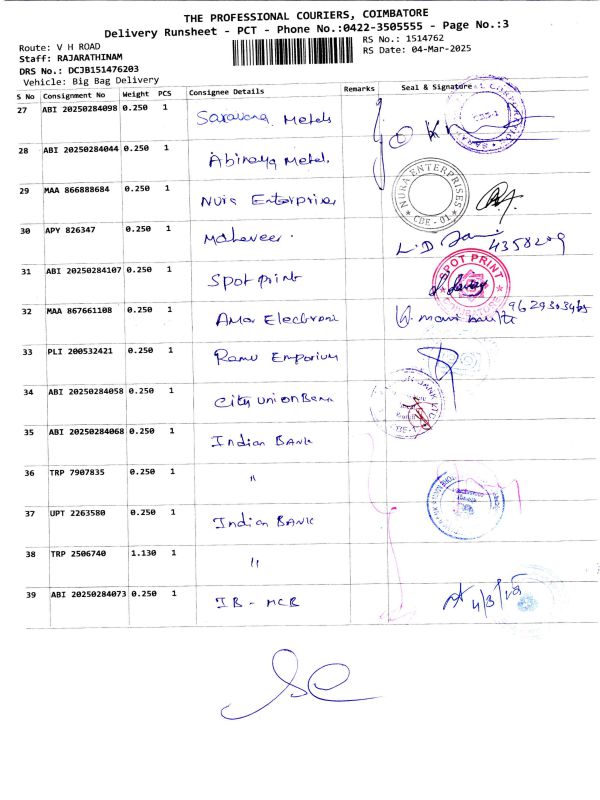 THE PROFESSIONAL COURIERS, COIMBATORE
Delivery Runsheet - PCT - Phone No.:0422-3505555 - Page No.:3
Route: V H ROAD
RS No.: 1514762
Staff: RAJARATHINAM
RS Date: 04-Mar-2025
DRS No.: DCJB151476203
Vehicle: Big Bag Delivery
S No Consignment No Weight PCS Consignee Details Remarks Seal & Signature
27 ABI 20250284098 0.250 1 Saravana Metals
28 ABI 20250284044 0.250 1 Abinaya Metal.
29 MAA 866888684 0.250 1 Nura Enterprises NURA ENTERPRISES CBE - 01
30 APY 826347 0.250 1 Mahaveer. 4358209
31 ABI 20250284107 0.250 1 Spot print SPOT PRINT
32 MAA 867661108 0.250 1 Amar Electroni
33 PLI 200532421 0.250 1 Ramu Emporium
34 ABI 20250284058 0.250 1 City Union Bank
35 ABI 20250284068 0.250 1 Indian BANK
36 TRP 7907835 0.250 1 "
37 UPT 2263580 0.250 1 Indian BANK
38 TRP 2506740 1.130 1 "
39 ABI 20250284073 0.250 1 IB - MCB 4/3/25